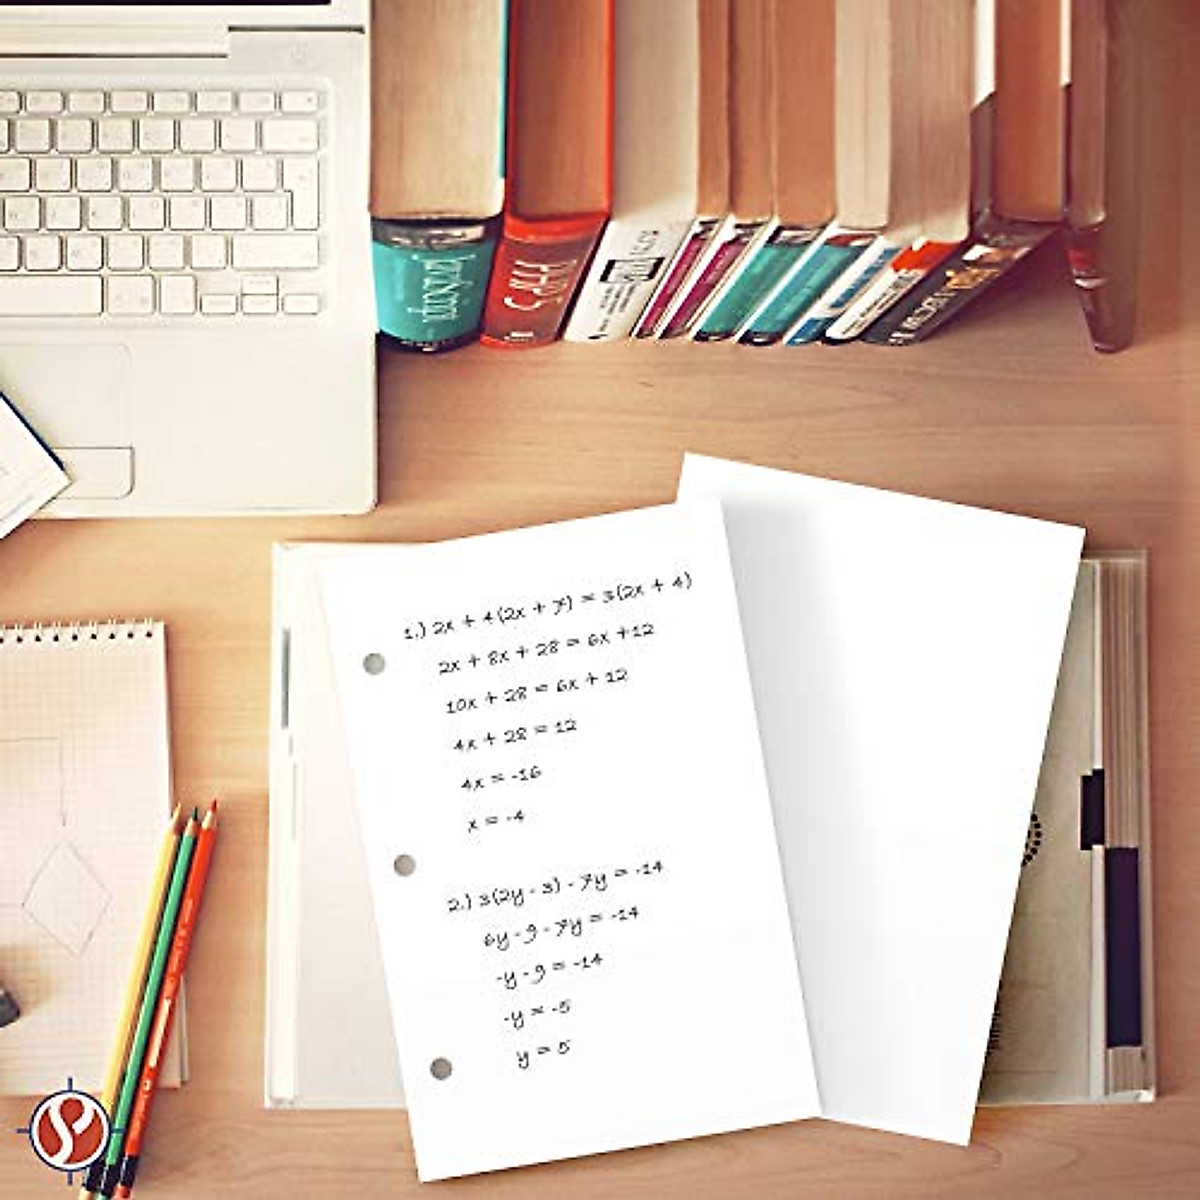 1.) 2x + 4(2x + 7) = 3(2x + 4)
2x + 8x + 28 = 6x + 12
10x + 28 = 6x + 12
4x + 28 = 12
4x = -16
x = -4
2.) 3(2y - 3) - 7y = -14
6y - 9 - 7y = -14
-y - 9 = -14
-y = -5
y = 5